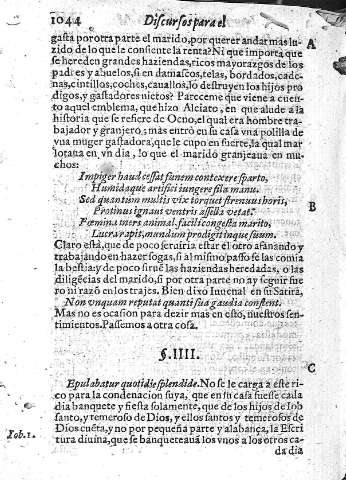 1044 Discursos para el
gasta por otra parte el marido, por querer andar mas lu-
zido de lo que le consiente la renta? Ni que importa que
se hereden grandes haziendas, ricos mayorazgos de los
padres y abuelos, si en damascos, telas, bordados, cade-
nas, cintillos, coches, cauallos, lo destruyen los hijos pro
digos, y gastadores nietos? Pareceme que viene a cuen-
to aquel emblema, que hizo Alciato, en que alude a la
historia que se refiere de Ocno, el qual era hombre tra-
bajador y granjero; mas entrò en su casa vna polilla de
vna muger gastadora, que le cupo en suerte, la qual mar
lotaua en vn dia, lo que el marido granjeaua en mu-
chos:
Impiger haud cessat funem contexere sparto,
Humidaque artifici iungere fila manu.
Sed quantum multis vix torquet strenuus horis,
Protinus ignaui ventris asella vorat.
Fœmina iners animal, facili congesta marito,
Lucra rapit, mundum prodigit inque suum.
Claro està, que de poco seruiria estar el otro afanando y
trabajando en hazer sogas, si al mismo passo se las comia
la bestia; y de poco siruē las haziendas heredadas, o las
diligēcias del marido, si por otra parte no ay seguir fue
ro ni razō en los trajes. Bien dixo Iuuenal en su Satira,
Non vnquam reputat quanti sua gaudia constent.
Mas no es ocasion para dezir mas en esto, nuestros sen-
timientos. Passemos a otra cosa.
§. IIII.
Epulabatur quotidie splendide. No se le carga a este ri-
co para la condenacion suya, que en su casa fuesse cada
dia banquete y fiesta solamente, que de los hijos de Iob
santo, y temeroso de Dios, y ellos santos y temerosos de
Dios cuēta, y no por pequeña parte y alabança, la Escri
tura diuina, que se banqueteauā los vnos a los otros ca-
da dia
Iob. 1.
A
B
C